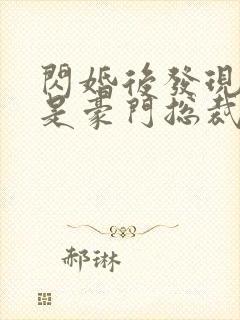 閃婚後發現
是豪門總裁
郝琳